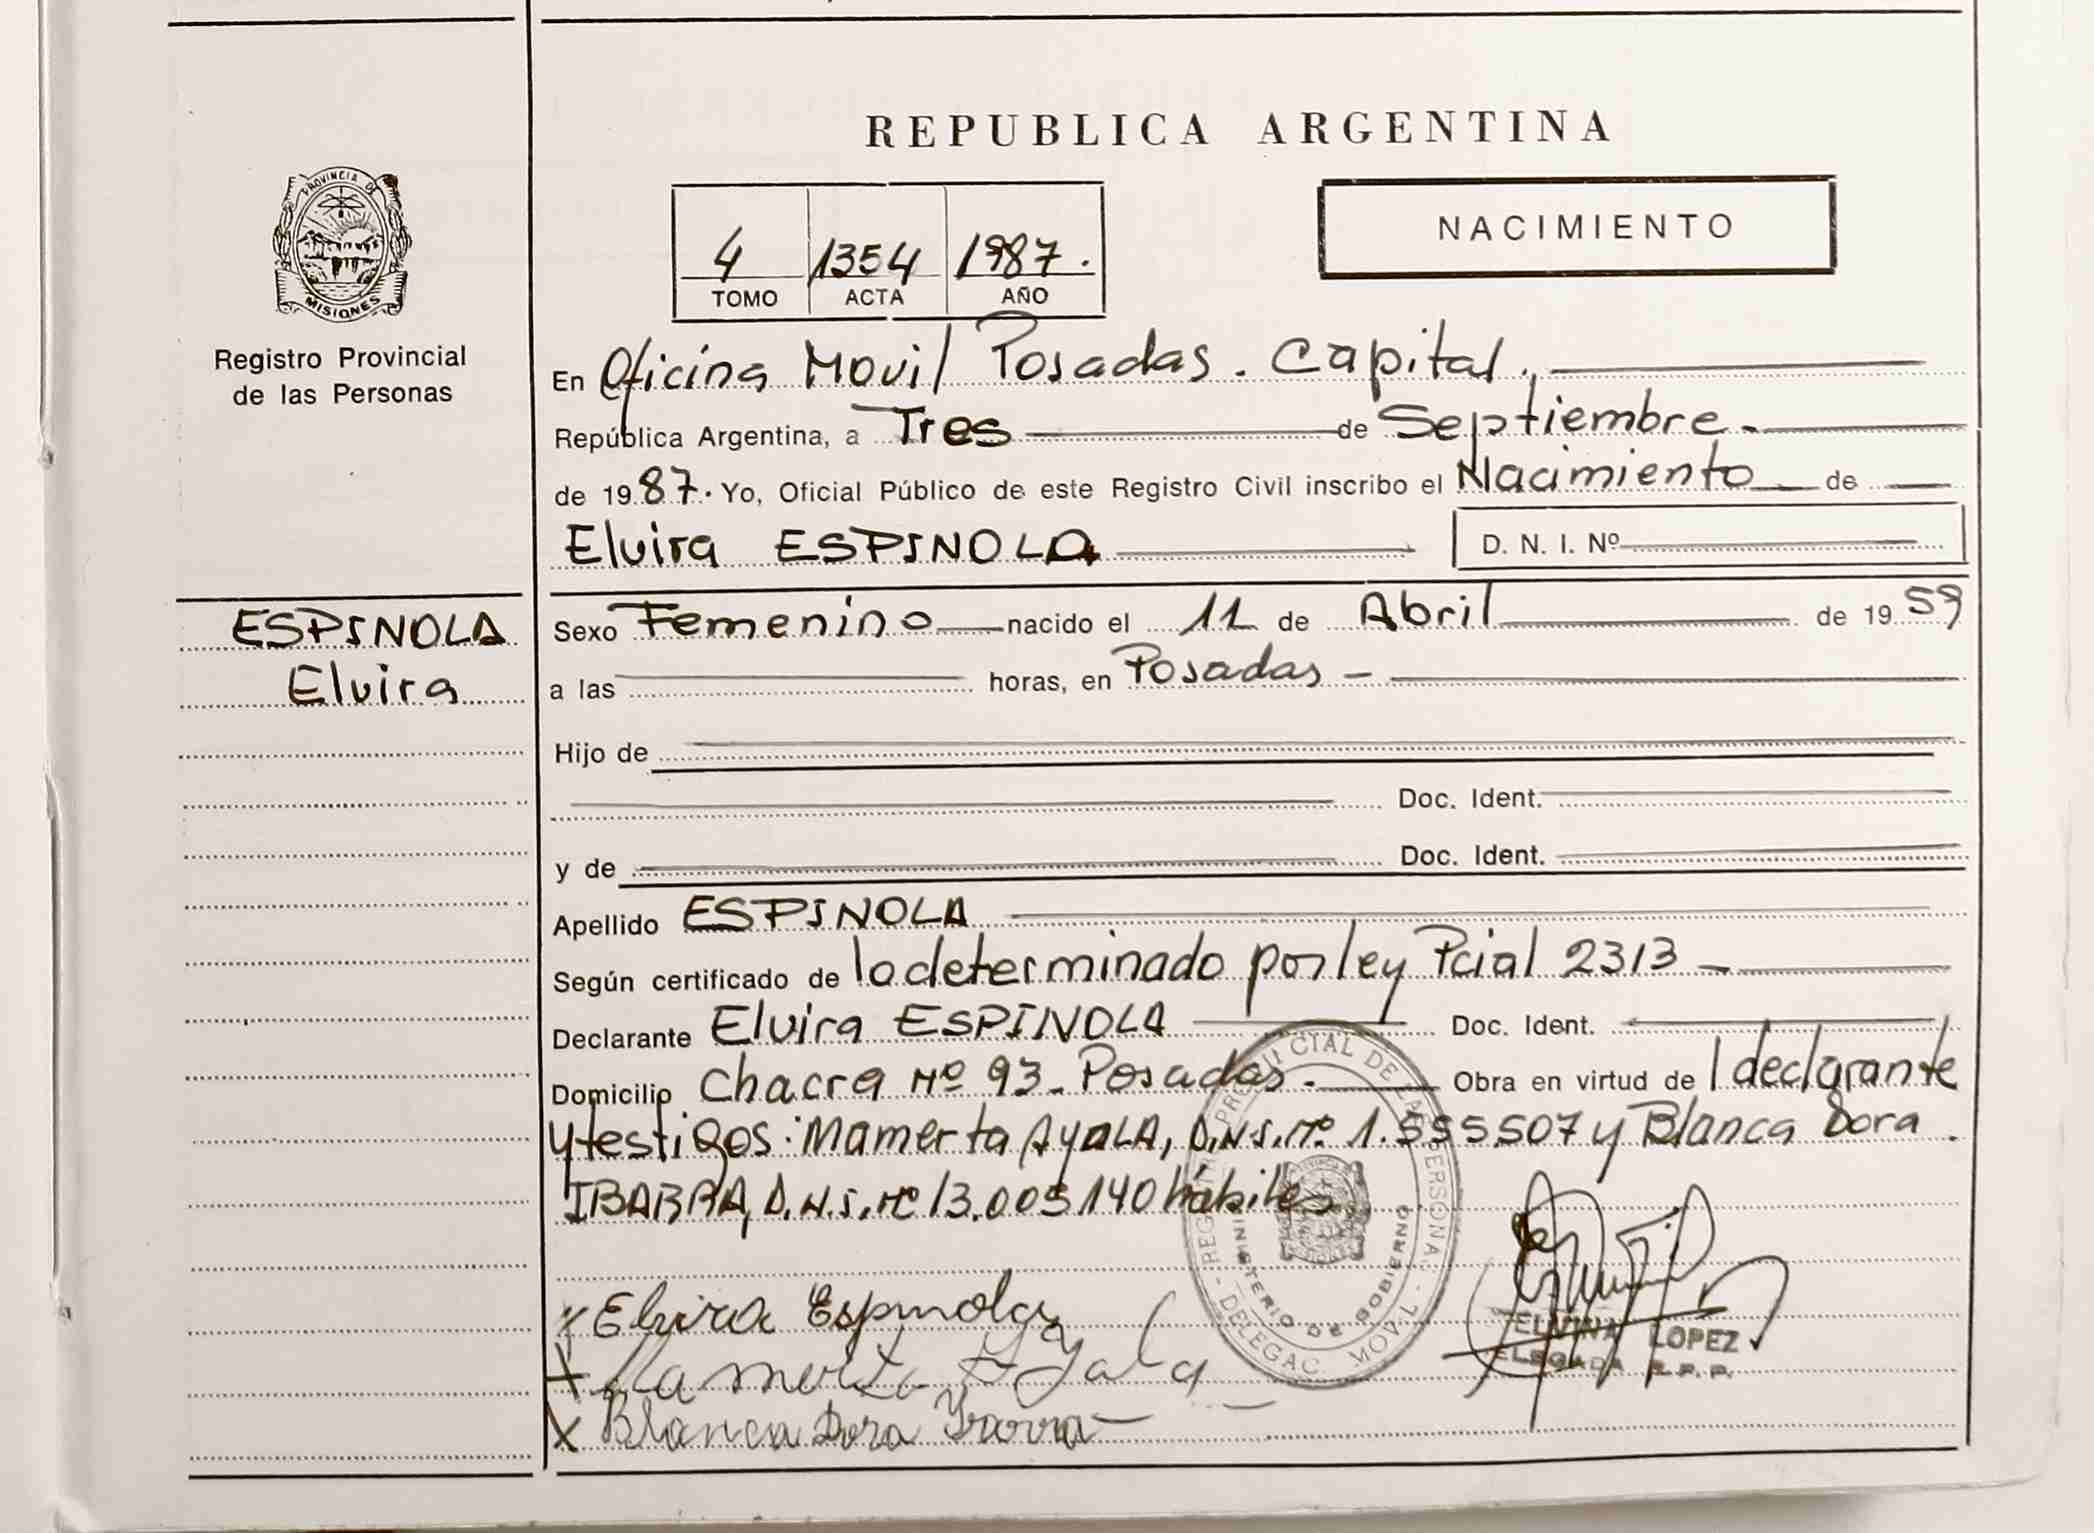 REPUBLICA ARGENTINA
PROVINCIA DE
MISIONES
Registro Provincial
de las Personas
4 1354 1987.
TOMO ACTA AÑO
NACIMIENTO
En Oficina Movil Posadas. Capital.
República Argentina, a Tres de Septiembre.
de 1987. Yo, Oficial Público de este Registro Civil inscribo el Nacimiento de
Elvira ESPINOLA D. N. I. Nº
ESPINOLA
Elvira
Sexo Femenino nacido el 11 de Abril de 1959
a las horas, en Posadas -
Hijo de
Doc. Ident.
y de Doc. Ident.
Apellido ESPINOLA
Según certificado de lo determinado por ley Pcial 2313 -
Declarante Elvira ESPINOLA Doc. Ident.
Domicilio Chacra Nº 93 - Posadas. - Obra en virtud de l declarante
y testigos: Mamerta AYALA, D.N.I. Nº 1.555507 y Blanca Dora
IBARRA, D.N.I. Nº 13.005140 hábiles
Elvira Espinola
Mamerta Ayala
Blanca Dora Ybarra
MINISTERIO DE GOBIERNO
DELEGAC. MOVIL
ELVINA LOPEZ
DELEGADA R.P.P.